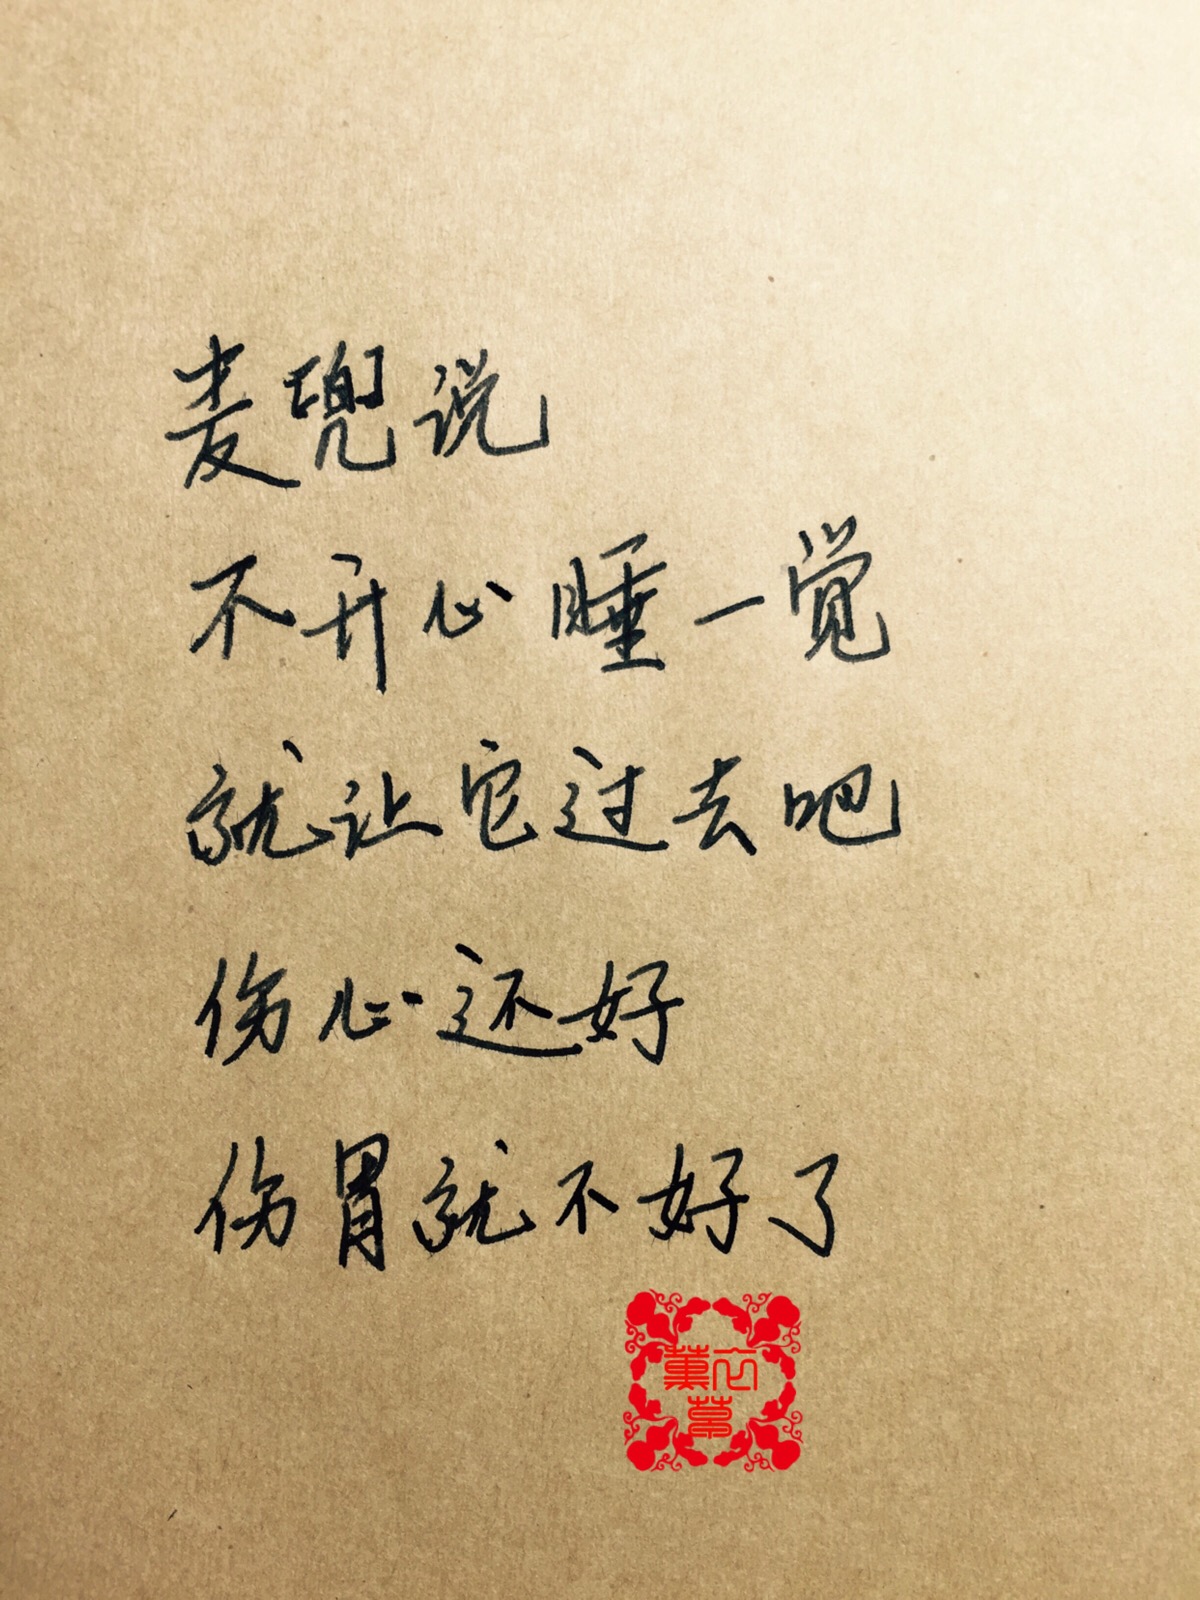 麦兜说
不开心睡一觉
就让它过去吧
伤心还好
伤胃就不好了
薰衣
草